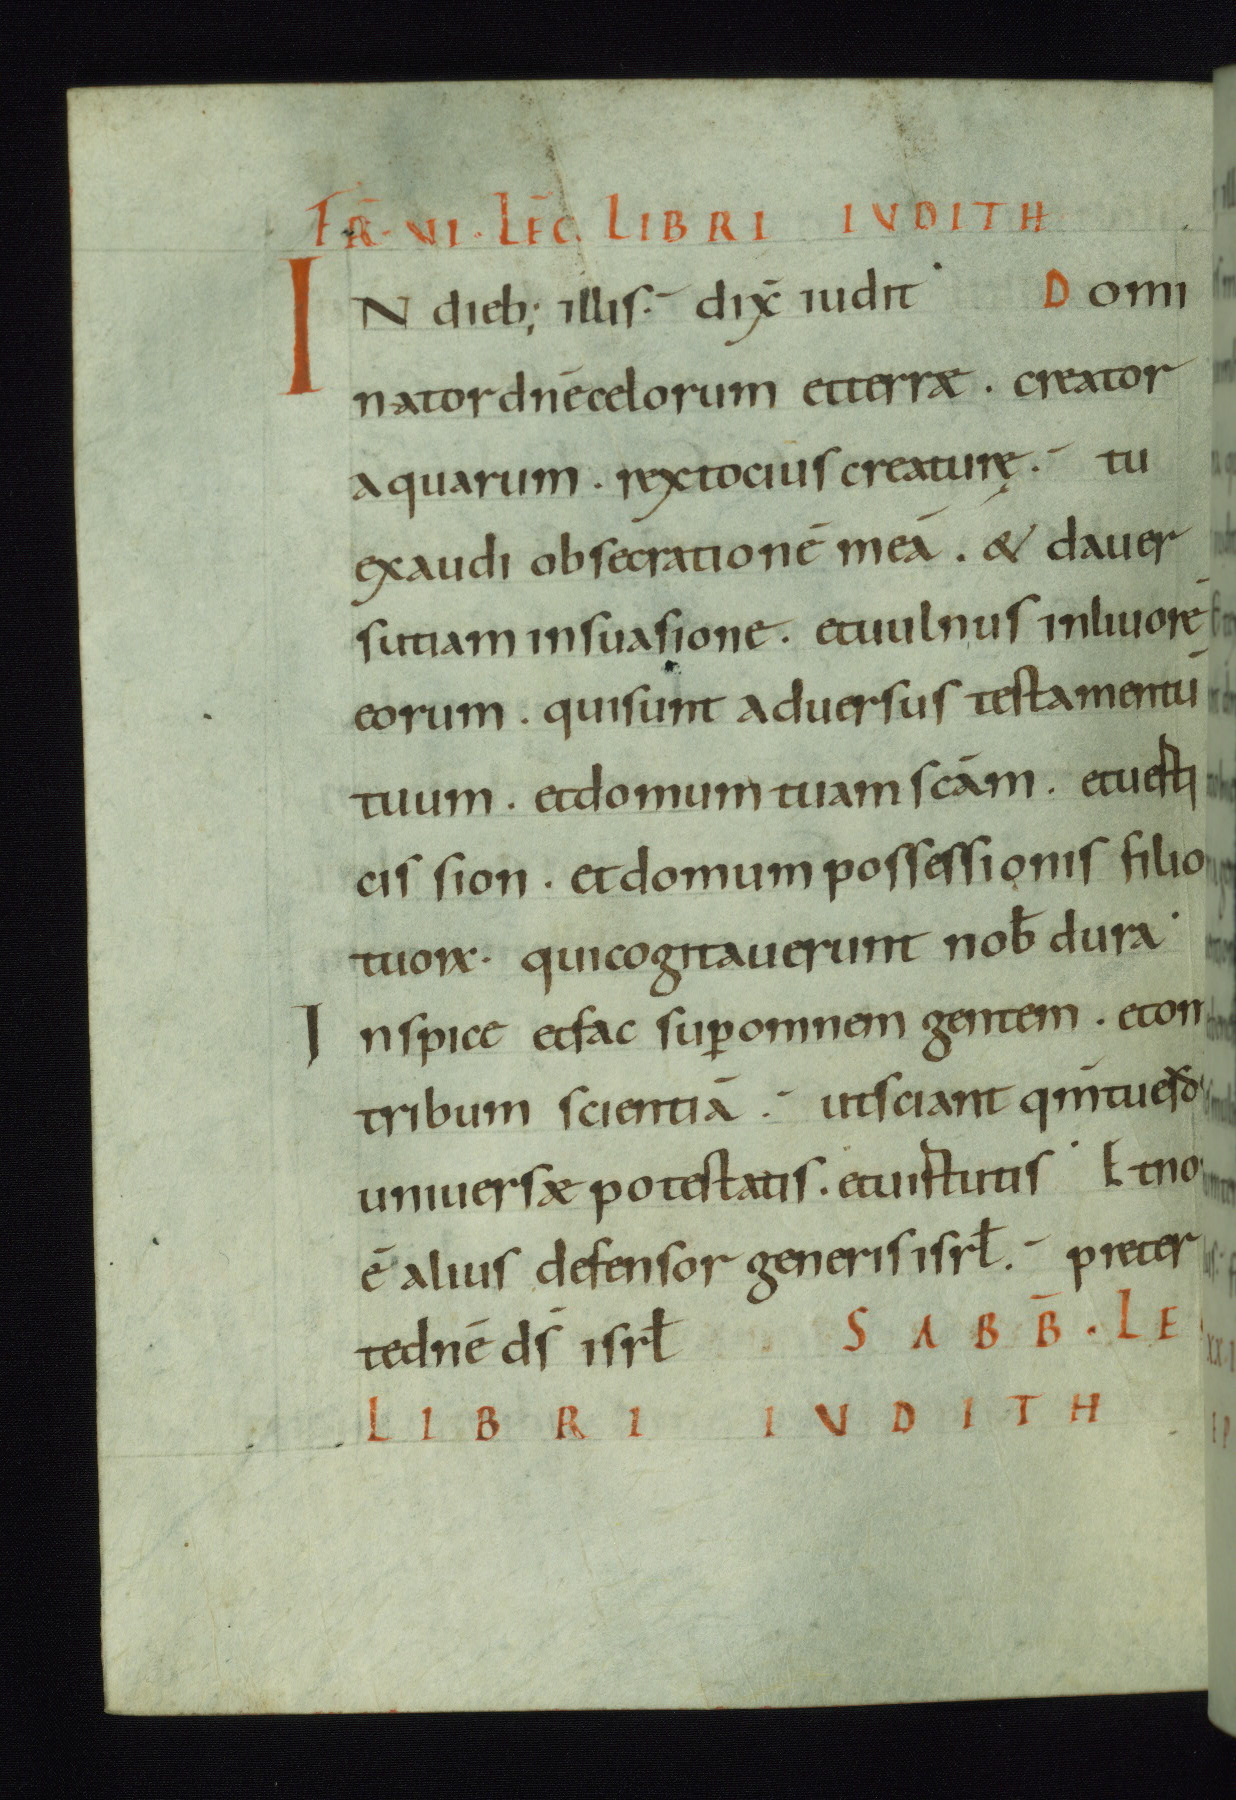 FR̄·VI·LEC̄ LIBRI IUDITH
IN dieb; illis· dix̄ iudit D omi
nator dnē celorum et terrae . creator
aquarum . rex tocius creaturę . tu
exaudi obsecrationē meā . & da ver
sutiam in suasione . et uulnus in liuorē
eorum . qui sunt aduersus testamentū
tuum . et domum tuam scām . et uerti
cis sion . et domum possessionis filio
tuoꝝ . qui cogitauerunt nob̄ dura
Inspice et fac suꝑ omnem gentem . et om
tribum scientiā . ut sciant qm̄ tu es
uniuersae potestatis . et uirtutis Et no
ē alius defensor generis isrł . preter
te dnē ds̄ isrł SABB̄ . LE
LIBRI IUDITH